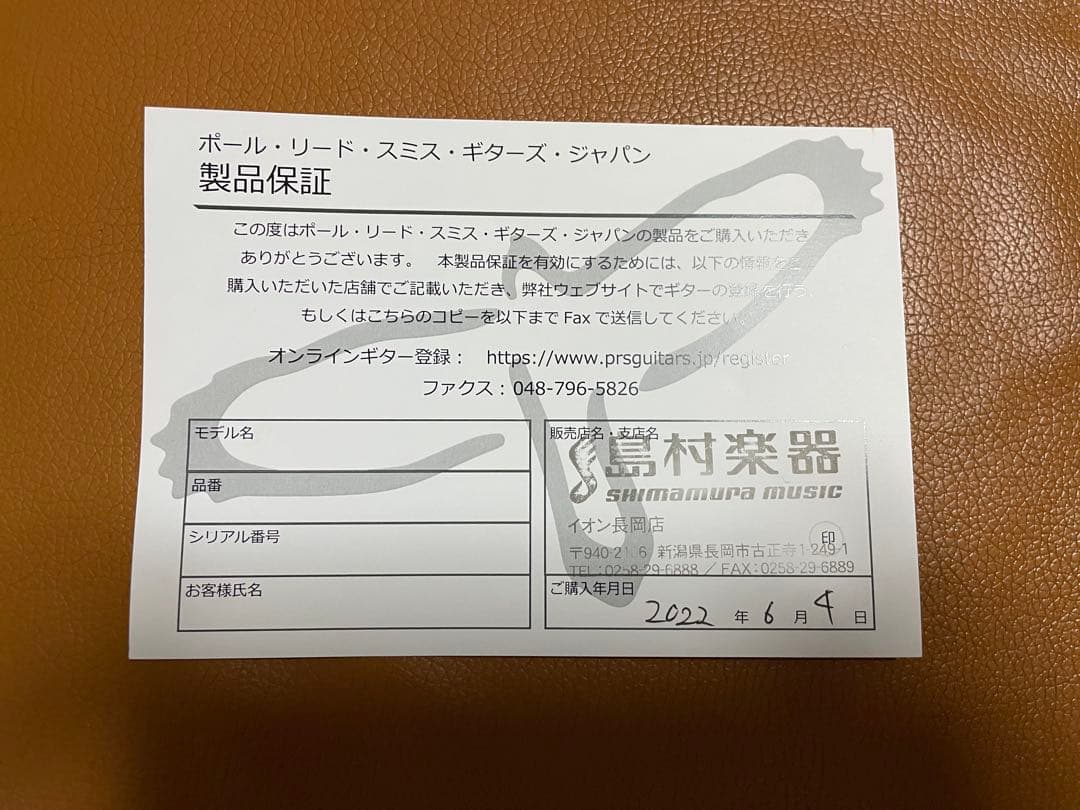 ポール・リード・スミス・ギターズ・ジャパン
製品保証
この度はポール・リード・スミス・ギターズ・ジャパンの製品をご購入いただき
ありがとうございます。 本製品保証を有効にするためには、以下の情報をご
購入いただいた店舗でご記載いただき、弊社ウェブサイトでギターの登録を行う、
もしくはこちらのコピーを以下まで Fax で送信してください。
オンラインギター登録： https://www.prsguitars.jp/register
ファクス：048-796-5826
モデル名
品番
シリアル番号
お客様氏名
販売店名・支店名
島村楽器
SHIMAMURA MUSIC
イオン長岡店
印
〒940-2106 新潟県長岡市古正寺1-249-1
TEL：0258-29-6888 ／ FAX：0258-29-6889
ご購入年月日
2022 年 6 月 4 日